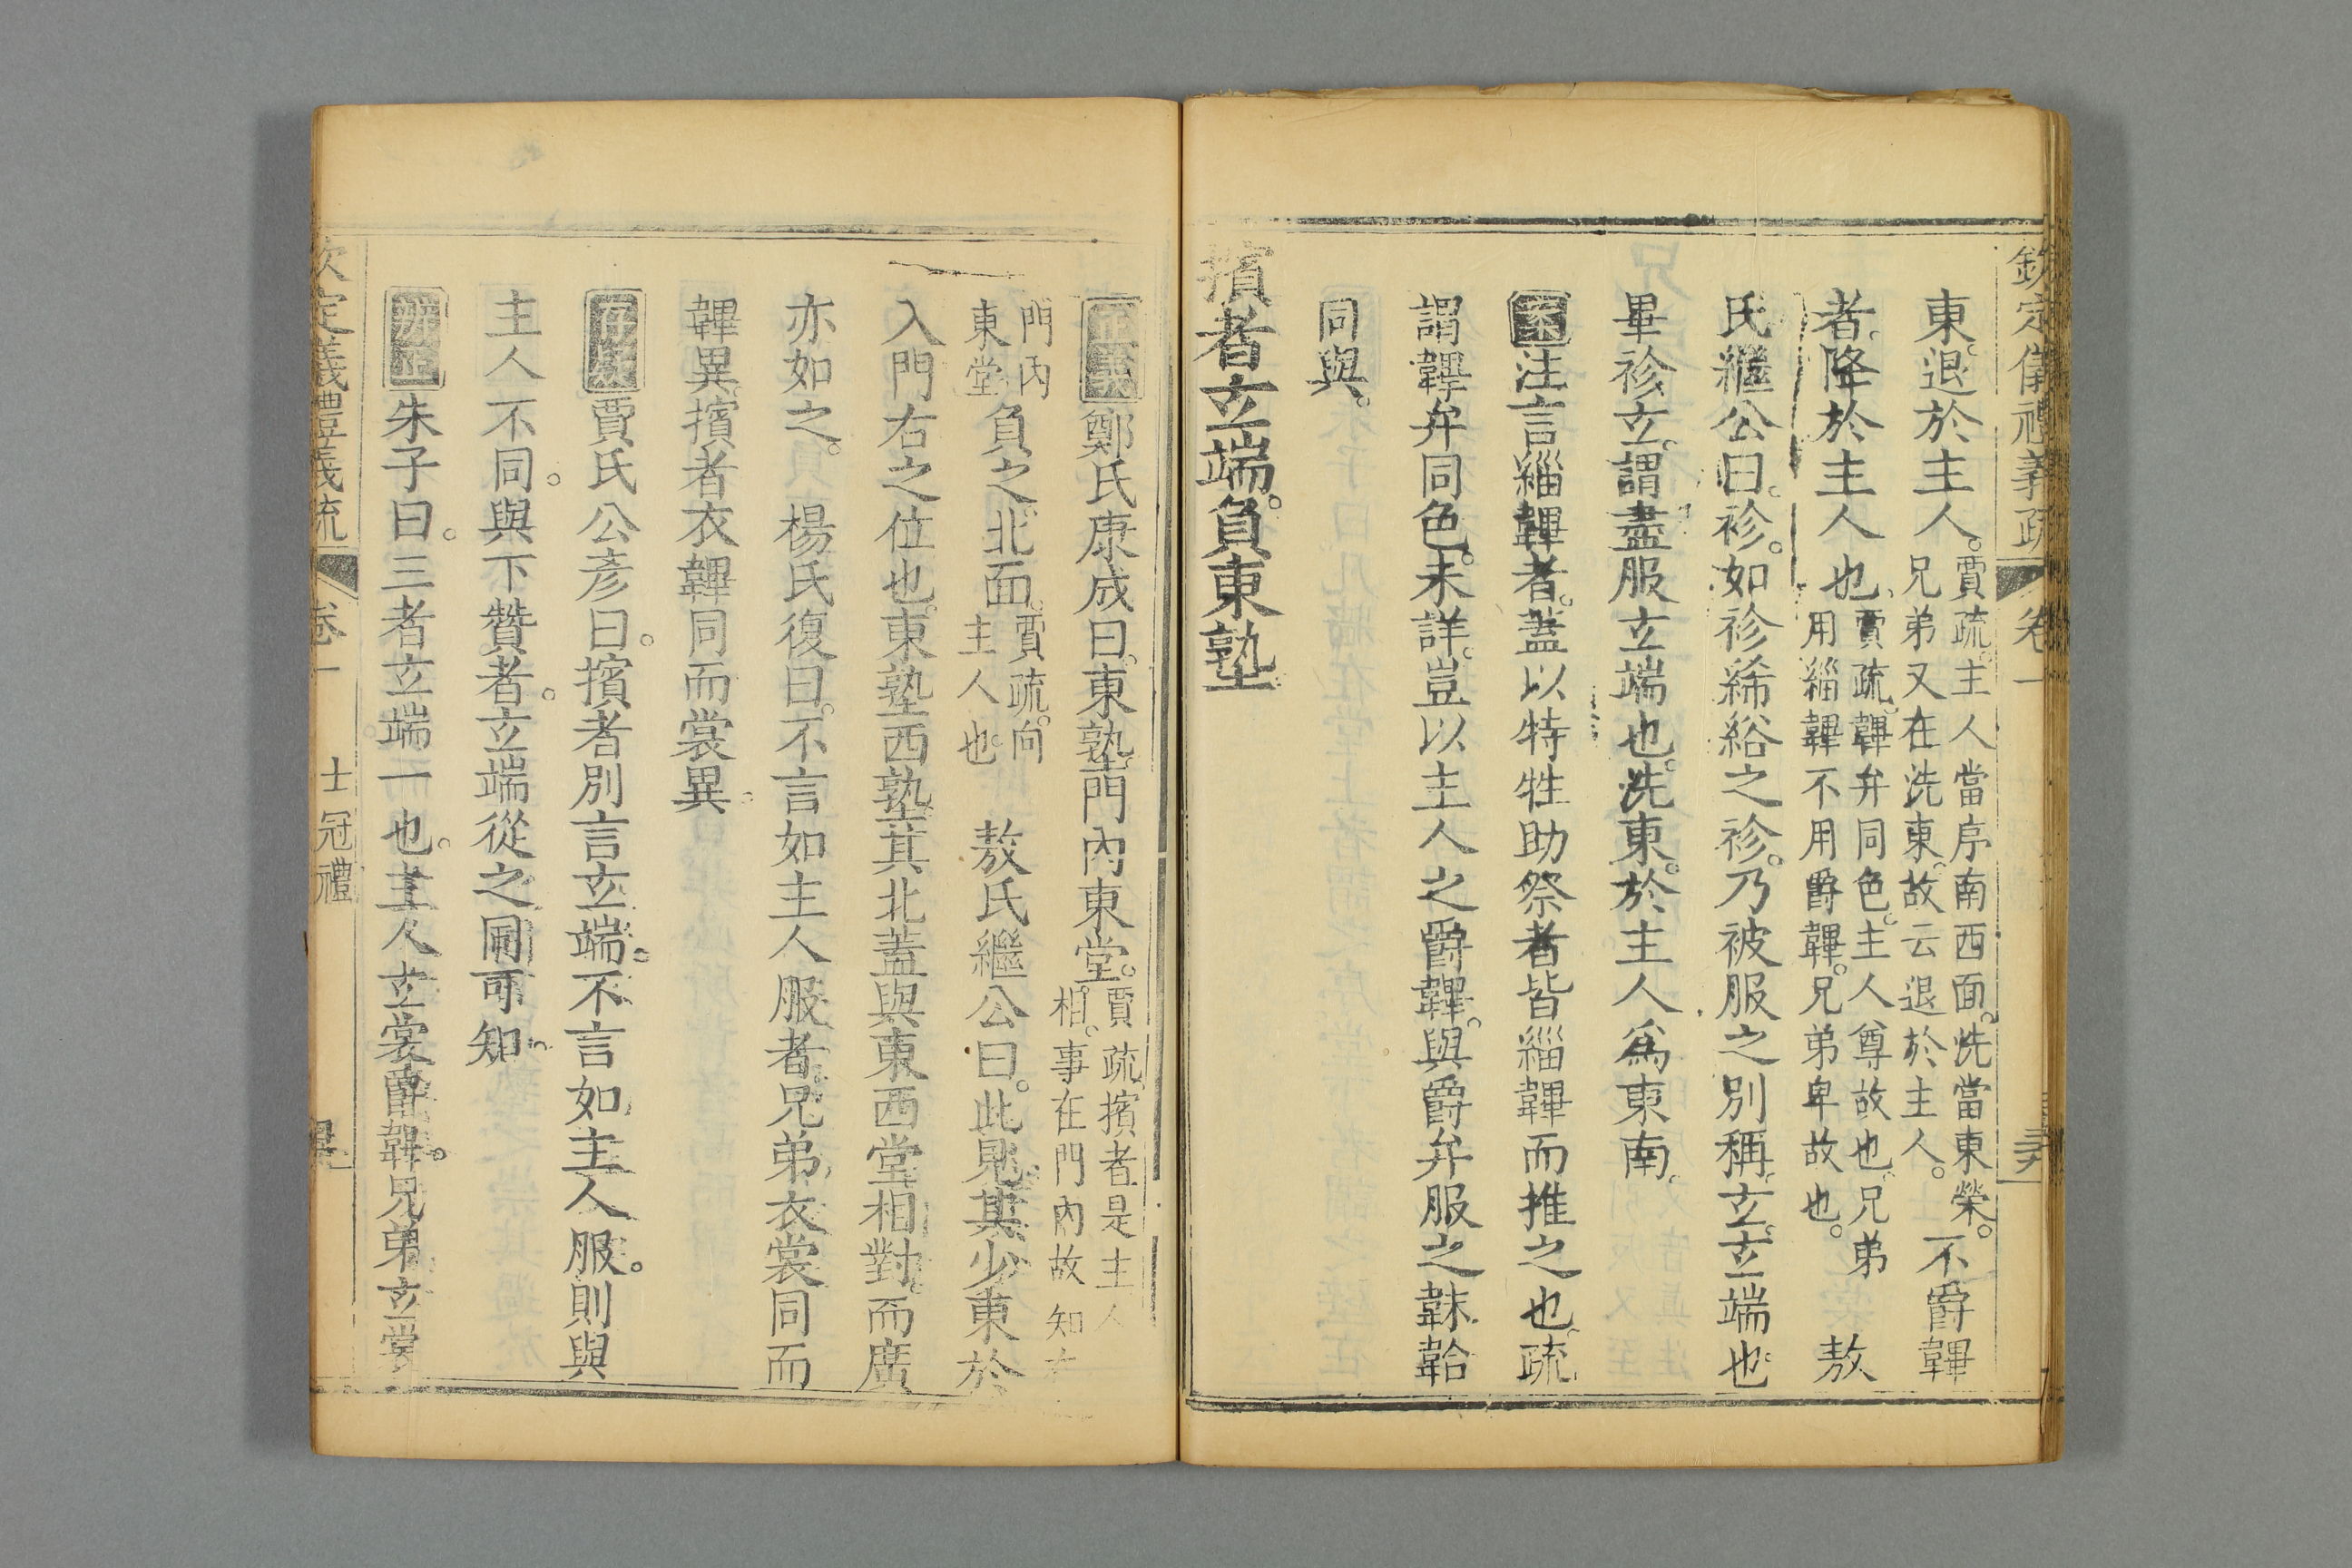 欽定儀禮義疏 卷一
東退於主人。賈疏。主人當序南西面。洗當東榮。兄弟又在洗東。故云退於主人。不爵韠
者。降於主人也。賈疏。韠弁同色。主人尊故也。兄弟用緇韠不用爵韠。兄弟卑故也。 敖
氏繼公曰。袗。如袗絺綌之袗。乃被服之別稱。玄。玄端也
畢袗玄。謂盡服玄端也。洗東。於主人爲東南。
案注言緇韠者。蓋以特牲助祭者皆緇韠而推之也。疏
謂韠弁同色。未詳。豈以主人之爵韠。與爵弁服之韎韐
同與。
擯者玄端。負東塾
正義鄭氏康成曰。東塾。門內東堂。賈疏。擯者是主人相。事在門內故知
門內東堂負之。北面。賈疏。向主人也。 敖氏繼公曰。此見其少東於
入門右之位也。東塾西塾其北蓋與東西堂相對。而廣
亦如之。 楊氏復曰。不言如主人服者。兄弟衣裳同而
韠異。擯者衣韠同而裳異
賈氏公彥曰。擯者別言玄端。不言如主人服。則與
主人不同。與下贊者。玄端從之同可知
辨正朱子曰。三者玄端一也。主人玄裳爵韠。兄弟玄裳
欽定義禮義疏 卷一 士冠禮